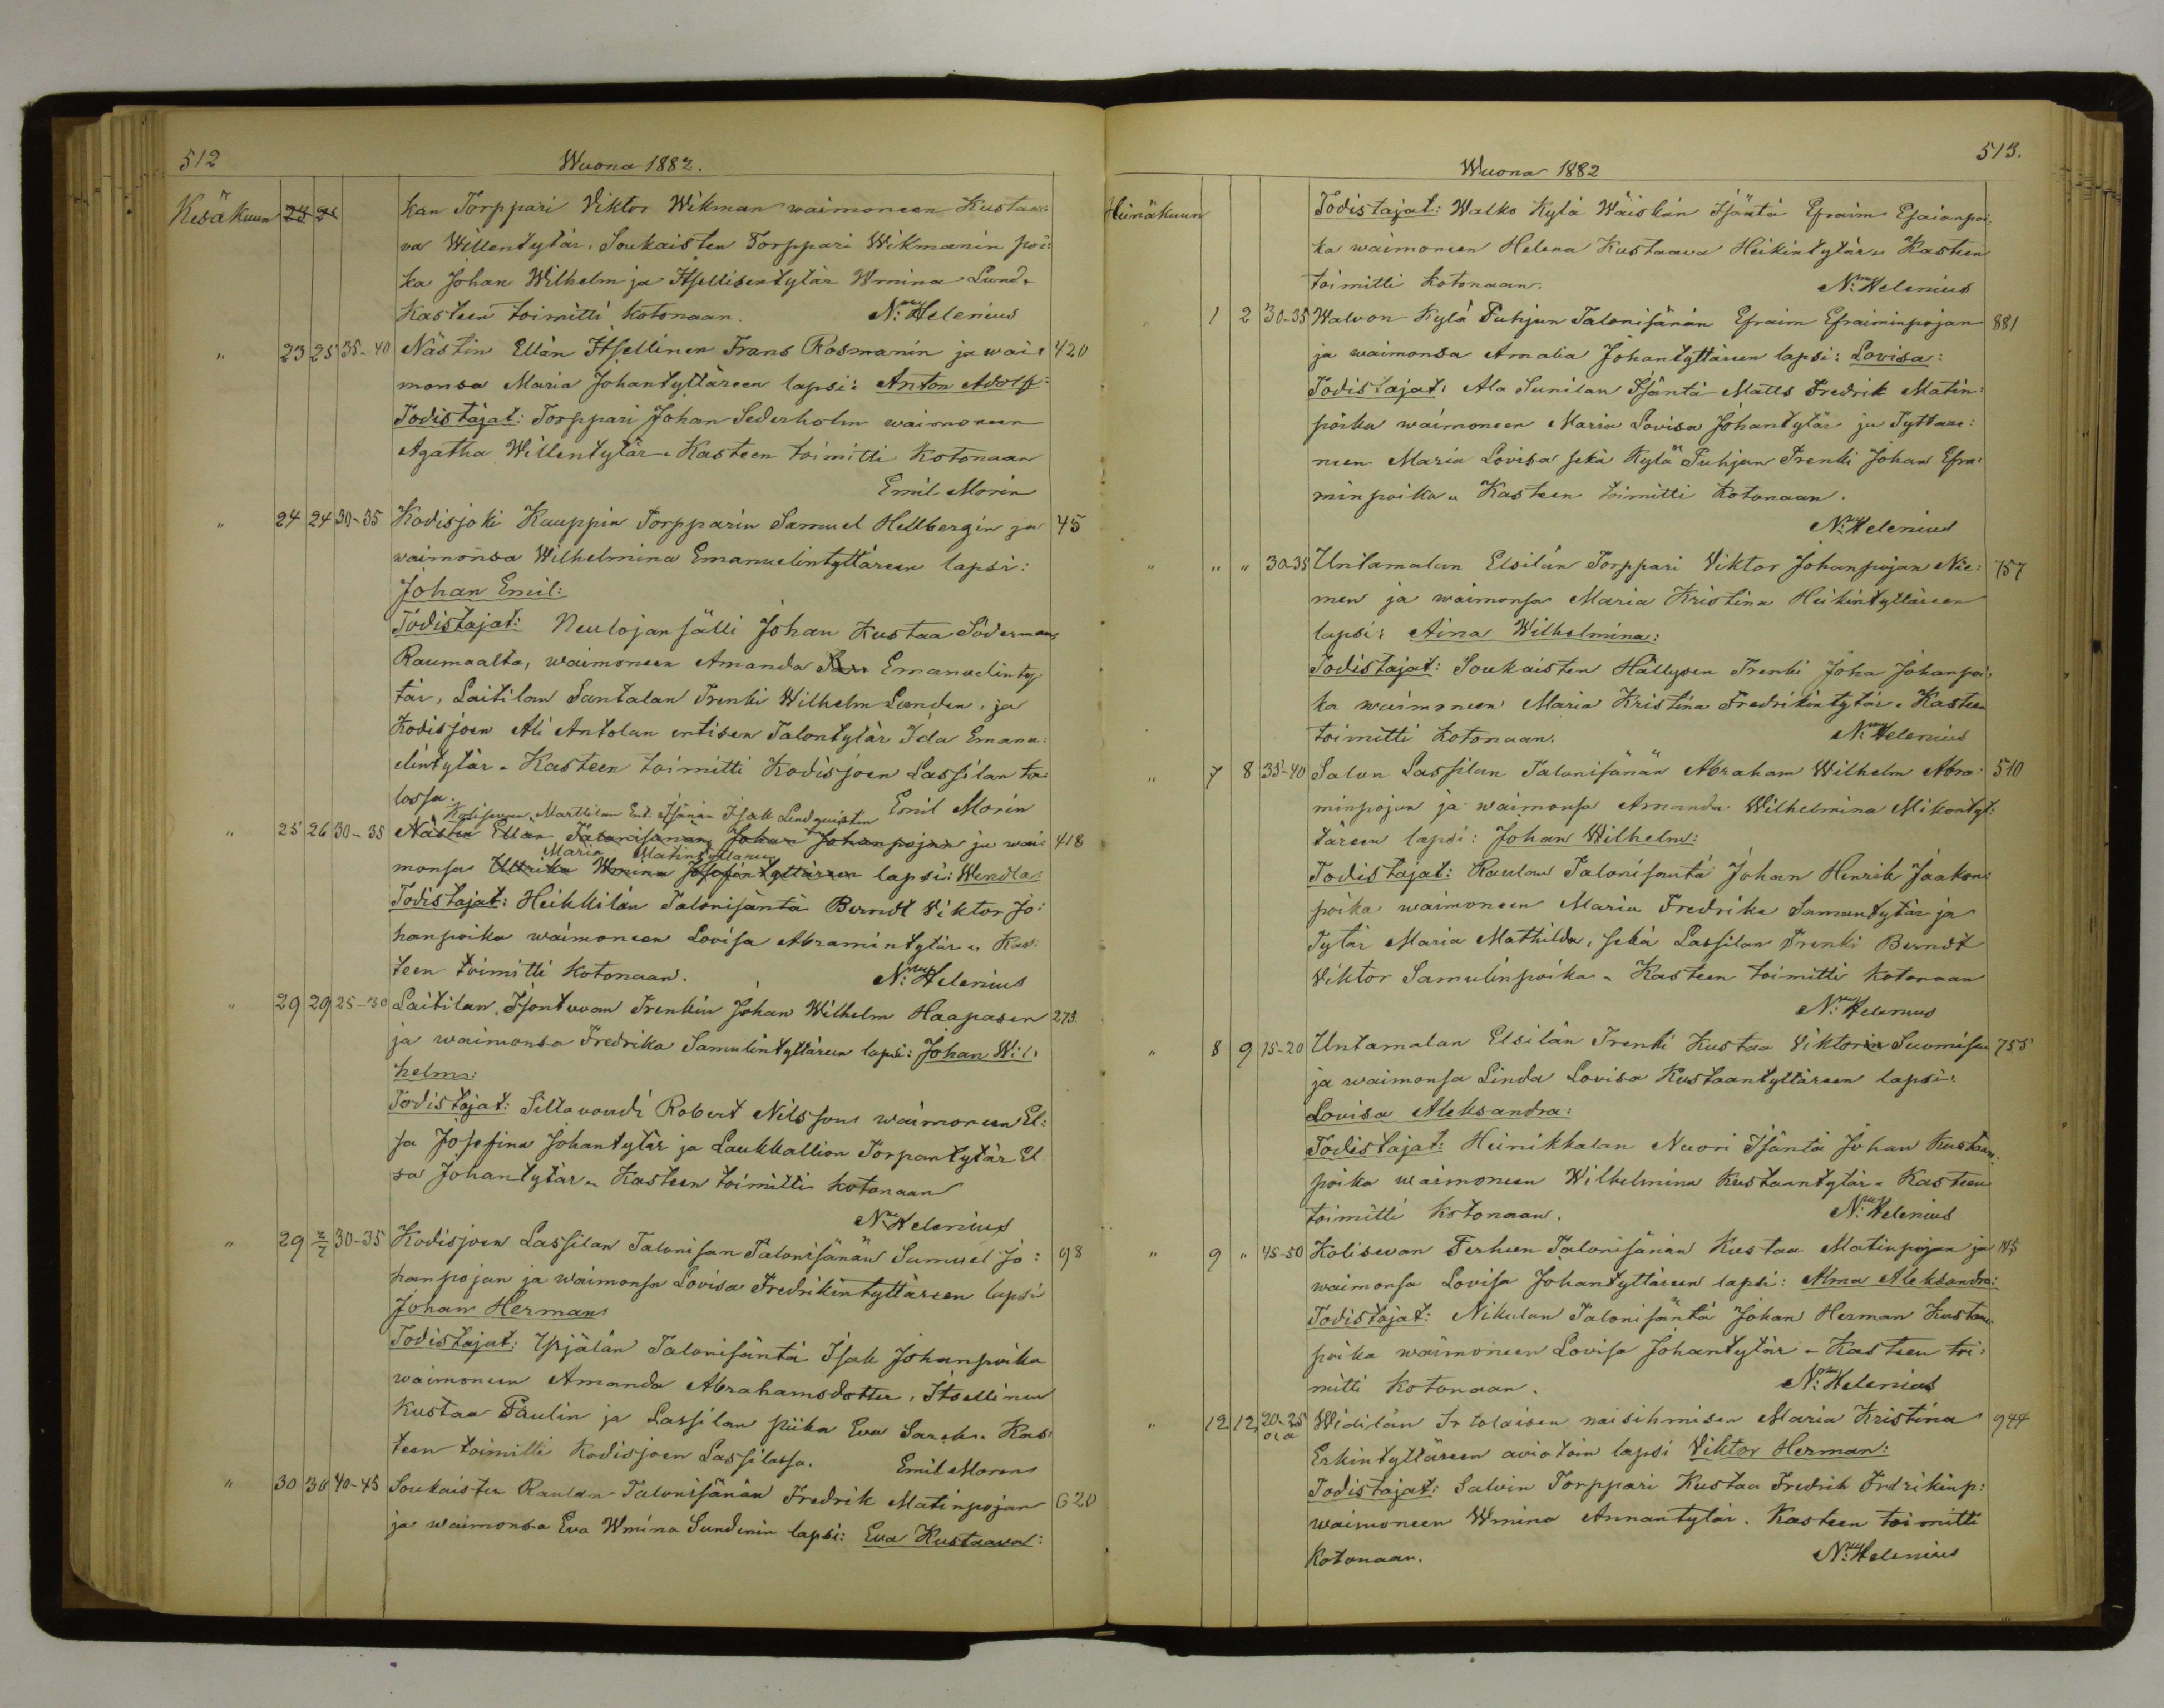 512
Wuona 1882.
Kesäkuun 23 25 kan Torppari Viktor Wikman waimoneen Kustaa:
va Willentytär, Soukaisten Torppari Wikmanin poi:
ka Johan Wilhelm ja Itsellisentytär Wmina Lund.
Kasteen toimitti kotonaan. N: Helenius
" 23 25 35-40 Nästin Ellän Itsellinen Frans Rosmanin ja wai: 420
monsa Maria Johantyttäreen lapsi: Anton Adolf:
Todistajat: Torppari Johan Sederholm waimoneen
Agatha Willentytär. Kasteen toimitti Kotonaan
Emil Morin
" 24 24 30-35 Kodisjoki Kauppin Torpparin Samuel Hellbergin ja 45
waimonsa Wilhelmina Emanuelintyttäreen lapsi:
Johan Emil:
Todistajat: Neulojansälli Johan Kustaa Söderman
Raumaalta, waimoneen Amanda Emanuelinty
tär, Laitilan Santalan Trenki Wilhelm Lunden, ja
Kodisjoen Ali Antolan entisen Talontytär Ida Emanu:
elintytär. Kasteen toimitti Kodisjoen Lassilan ta:
lossa. Emil Morin
Kodisjoen Marttilan Ent. Isänän Isak Lindqvistin
" 25 26 30-35 Nästin Ellän Talonisänän Johan Johanpojan ja wai: 418
Maria Matintyttären
monsa Ulrika Wmina Josefintyttäreen lapsi: Wendla:
Todistajat: Heikkilän Talonisäntä Berndt Viktor Jo:
hanpoika waimoneen Lovisa Abramintytär. Kas:
teen toimitti kotonaan. N: Helenius
" 29 29 25-30 Laitilan, Isontuvan Trenkin Johan Wilhelm Haapasen 273
ja waimonsa Fredrika Samulintyttäreen lapsi: Johan Wil:
helm:
Todistajat: Siltavouti Robert Nilsson waimoneen El:
sa Josefina Johantytär ja Laukkallion Torpantytär El
sa Johantytär. Kasteen toimitti kotonaan
N: Helenius
" 29 2/7 30-35 Kodisjoen Lassilan Talonisan Talonisänän Samuel Jo: 98
hanpojan ja waimonsa Lovisa Fredrikintyttäreen lapsi
Johan Herman
Todistajat: Ypjälän Talonisäntä Isak Johanpoika
waimoneen Amanda Abrahamsdotter, Itsellinen
Kustaa Paulin ja Lassilan piika Eva Sarah. Kas
teen toimitti Kodisjoen Lassilassa. Emil Moren
" 30 30 40-45 Soukaisten Raulan Talonisänän Fredrik Matinpojan 620
ja waimonsa Eva Wmina Sundenin lapsi: Eva Kustaava:
513.
Wuona 1882
Heinäkuun Todistajat: Walko Kylä Wäiskän Isäntä Efraim Esaianpoi:
ka waimoneen Helena Kustaava Heikintytär. Kasteen
toimitti kotonaan. N: Helenius
1 2 30-35 Walvon Kylä Puhjun Talonisänän Efraim Efraiminpojan 881
ja waimonsa Amalia Johantyttäreen lapsi: Lovisa:
Todistajat: Ala Sunilan Isäntä Matts Fredrik Matin:
poika waimoneen Maria Lovisa Johantytär ja Tyttare:
neen Maria Lovisa sekä Kylä Puhjun Trenki Johan Efra:
minpoika. Kasteen toimitti kotonaan.
N: Helenius
" " " 30-35 Untamalan Elsilän Torppari Viktor Johanpojan Nie: 757
men ja waimonsa Maria Kristina Heikintyttäreen
lapsi: Aina Wilhelmina:
Todistajat: Soukaisten Hällysen Trenki Joha Johanpoi:
ka waimoneen Maria Kristina Fredrikintytär. Kasteen
toimitti kotonaan. N: Helenius
" 7 8 35-40 Salon Lassilan Talonisänän Abraham Wilhelm Abra: 510
minpojan ja waimonsa Amanda Wilhelmina Mikontyt:
täreen lapsi: Johan Wilhelm:
Todistajat: Raulan Talonisäntä Johan Henrik Jaakon:
poika waimoneen Maria Fredrika Samuntytär ja
Tytär Maria Mathilda, sekä Lassilan Trenki Berndt
Viktor Samulinpoika. Kasteen toimitti kotonaan
N: Helenius
" 8 9 15-20 Untamalan Elsilän Trenki Kustaa Viktorin Suomisen 755
ja waimonsa Linda Lovisa Kustaantyttäreen lapsi:
Lovisa Aleksandra:
Todistajat: Heinikkalan Nuori Isäntä Johan Kustaan:
poika waimoneen Wilhelmina Kustaantytär. Kasteen
toimitti kotonaan. N: Helenius
" 9 " 45-50 Kolisevan Perheen Talonisänän Kustaa Matinpojan ja 145
waimonsa Lovisa Johantyttäreen lapsi: Alma Aleksandra:
Todistajat: Nikulan Talonisäntä Johan Herman Kustaan:
poika waimoneen Lovisa Johantytär. Kasteen toi:
mitti kotonaan. N: Helenius
" 12 12 20-25 Widilän Irtolaisen naisihmisen Maria Kristina 944
Erkintyttäreen aviotoin lapsi Viktor Herman:
Todistajat: Salvin Torppari Kustaa Fredrik Fredrikinp:
waimoneen Wmina Annantytär. Kasteen toimitti
kotonaan. N: Helenius